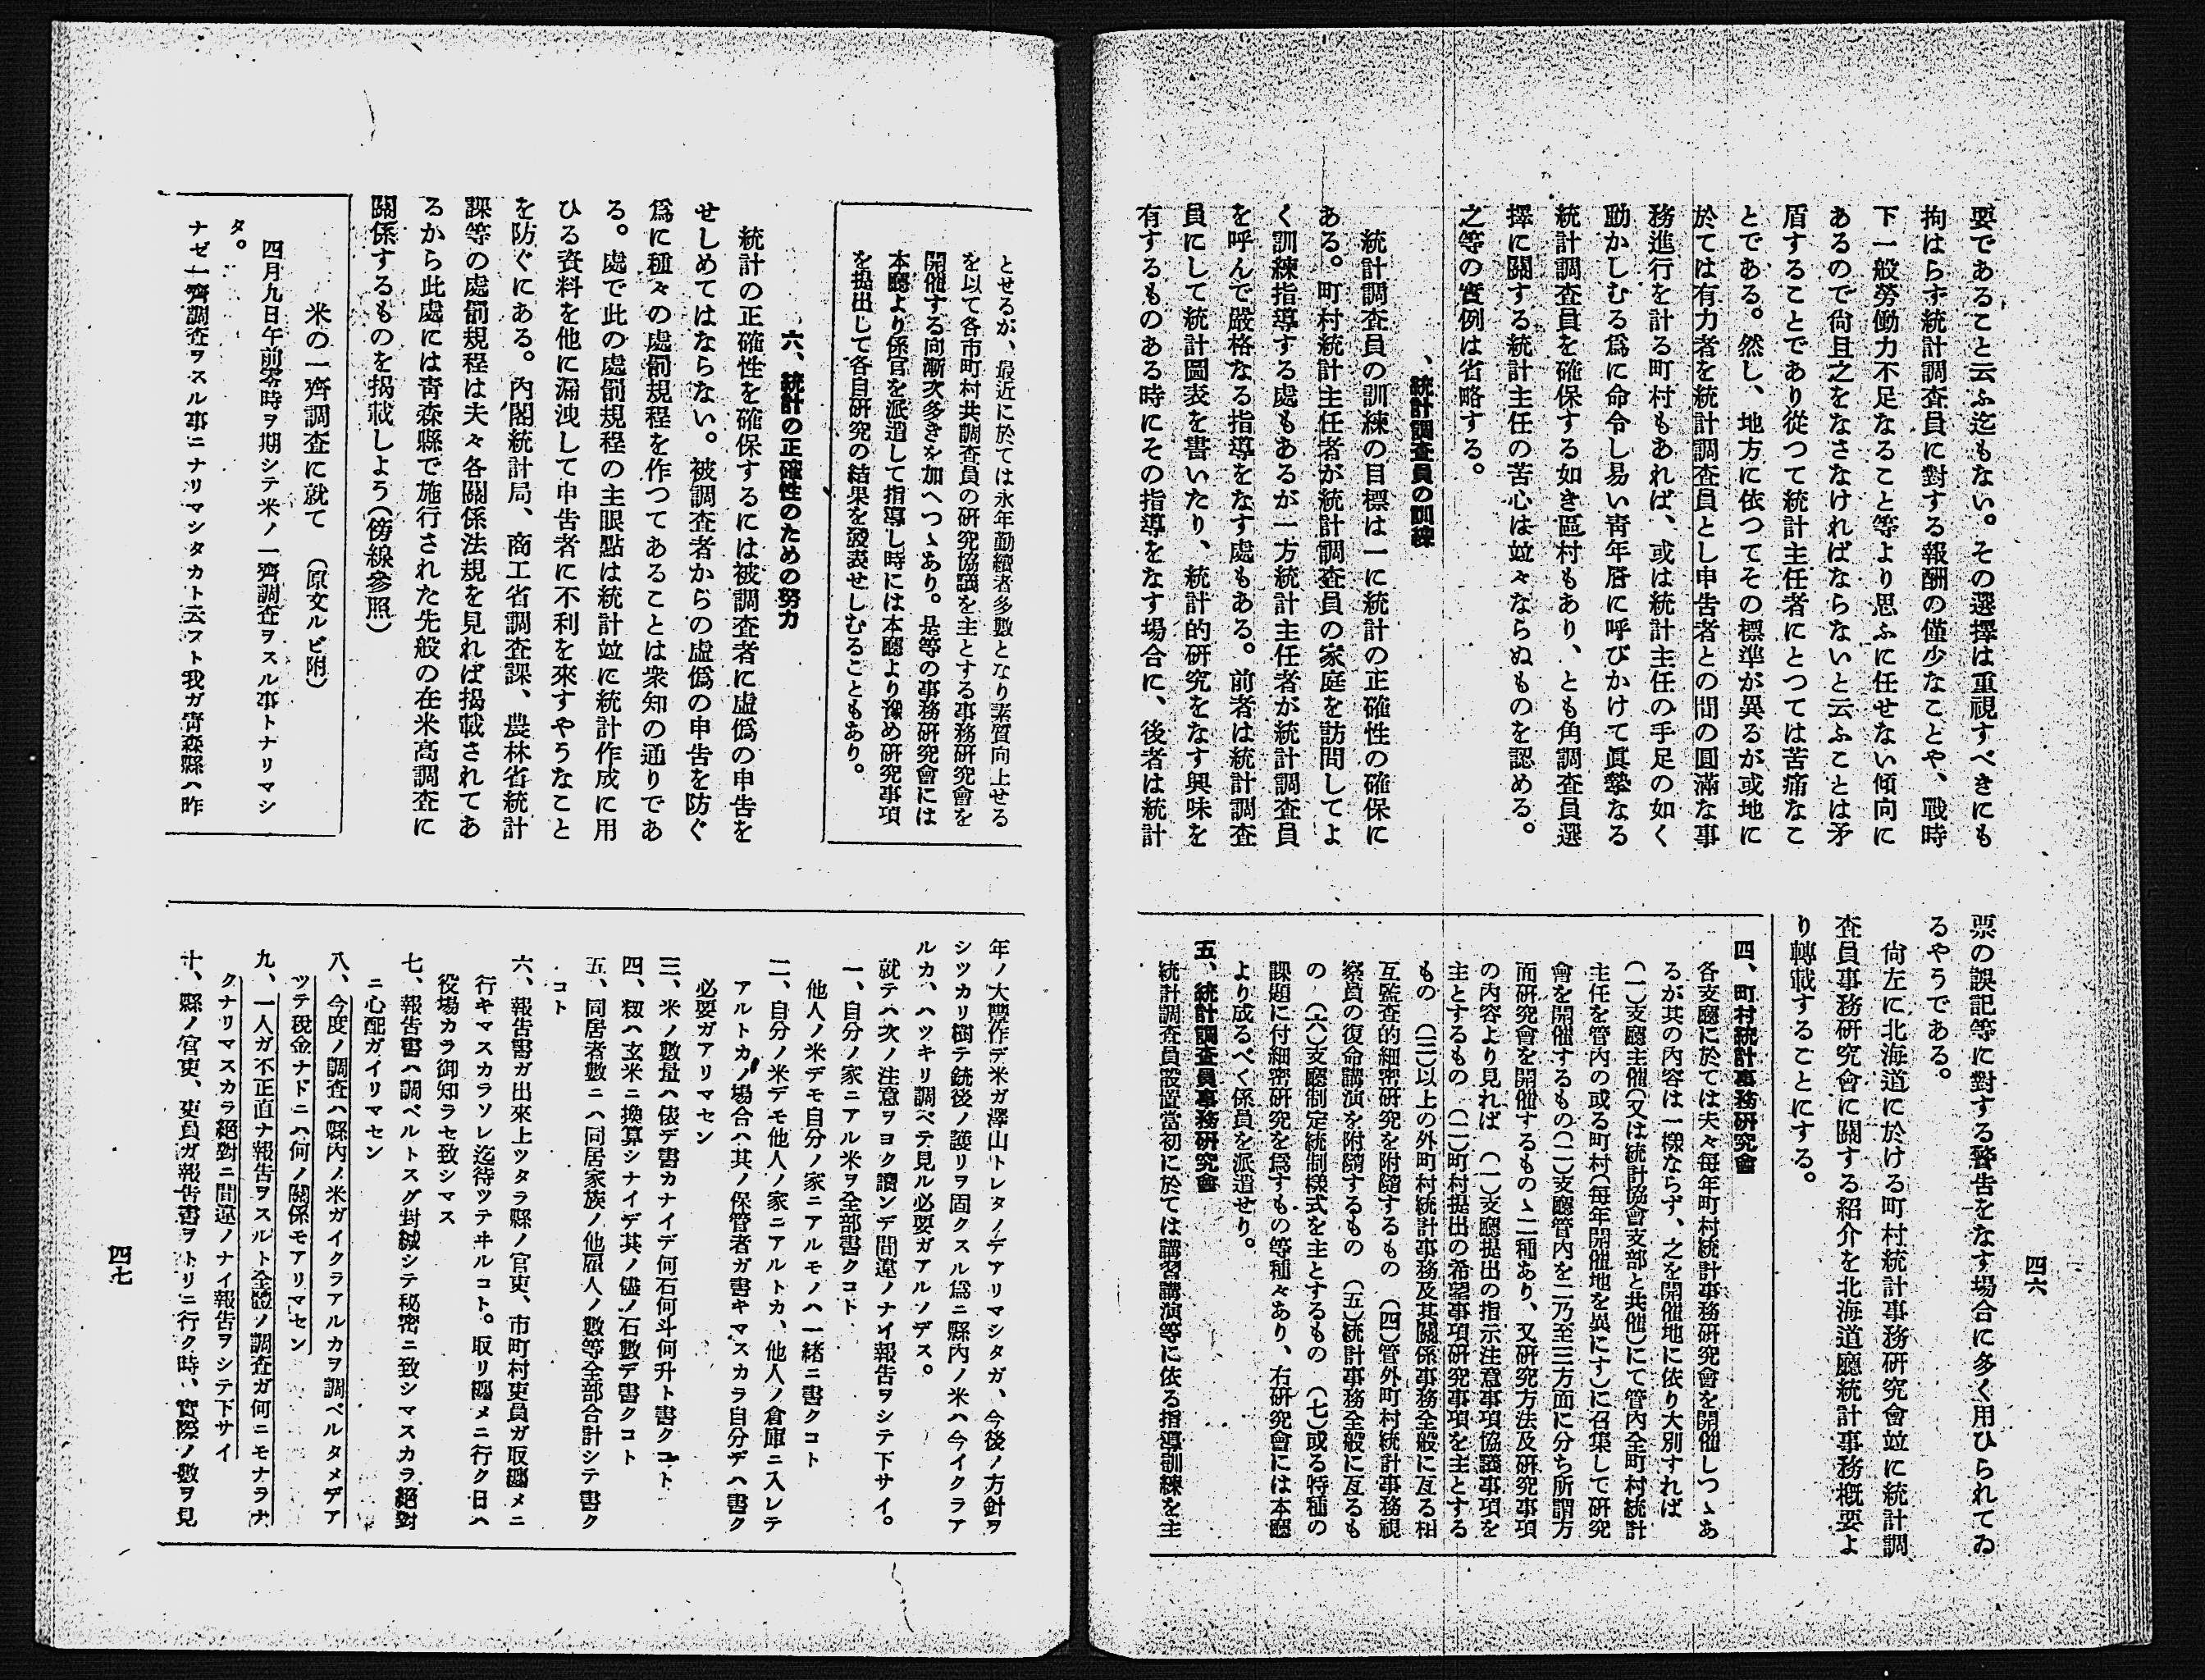 四六
要であること云ふ迄もない。その選擇は重視すべきにも
拘はらず統計調査員に對する報酬の僅少なことや、戰時
下一般勞働力不足なること等より思ふに任せない傾向に
あるので尙且之をなさなければならないと云ふことは矛
盾することであり從つて統計主任者にとつては苦痛なこ
とである。然し、地方に依つてその標準が異るが或地に
於ては有力者を統計調査員とし申吿者との間の圓滿な事
務進行を計る町村もあれば、或は統計主任の手足の如く
動かしむる爲に命令し易い靑年層に呼びかけて眞摯なる
統計調査員を確保する如き區村もあり、とも角調査員選
擇に關する統計主任の苦心は竝々ならぬものを認める。
之等の實例は省略する。
、統計調査員の訓練
統計調査員の訓練の目標は一に統計の正確性の確保に
ある。町村統計主任者が統計調査員の家庭を訪問してよ
く訓練指導する處もあるが一方統計主任者が統計調査員
を呼んで嚴格なる指導をなす處もある。前者は統計調査
員にして統計圖表を書いたり、統計的硏究をなす興味を
有するものある時にその指導をなす場合に、後者は統計
票の誤記等に對する警吿をなす場合に多く用ひられてゐ
るやうである。
尙左に北海道に於ける町村統計事務硏究會竝に統計調
査員事務硏究會に關する紹介を北海道廳統計事務概要よ
り轉載することにする。
四、町村統計事務硏究會
各支廳に於ては夫々每年町村統計事務硏究會を開催しつゝあ
るが其の內容は一樣ならず、之を開催地に依り大別すれば
(一)支廳主催(又は統計協會支部と共催)にて管內全町村統計
主任を管內の或る町村(每年開催地を異にす)に召集して硏究
會を開催するもの(二)支廳管內を二乃至三方面に分ち所謂方
面硏究會を開催するものゝ二種あり、又硏究方法及硏究事項
の內容より見れば (一)支廳提出の指示注意事項協議事項を
主とするもの (二)町村提出の希望事項硏究事項を主とする
もの (三)以上の外町村統計事務及其關係事務全般に亙る相
互監査的細密硏究を附隨するもの (四)管外町村統計事務視
察員の復命講演を附隨するもの (五)統計事務全般に亙るも
の (六)支廳制定統制樣式を主とするもの (七)或る特種の
課題に付細密硏究を爲すもの等種々あり、右硏究會には本廳
より成るべく係員を派遣せり。
五、統計調査員事務硏究會
統計調査員設置當初に於ては講習講演等に依る指導訓練を主
とせるが、最近に於ては永年勤續者多數となり素質向上せる
を以て各市町村共調査員の硏究協議を主とする事務硏究會を
開催する向漸次多きを加へつゝあり。是等の事務硏究會には
本廳より係官を派遣して指導し時には本廳より豫め硏究事項
を提出して各自硏究の結果を發表せしむることもあり。
六、統計の正確性のための努力
統計の正確性を確保するには被調査者に虛僞の申吿を
せしめてはならない。被調査者からの虛僞の申吿を防ぐ
爲に種々の處罰規程を作つてあることは衆知の通りであ
る。處で此の處罰規程の主眼點は統計竝に統計作成に用
ひる資料を他に漏洩して申吿者に不利を來すやうなこと
を防ぐにある。內閣統計局、商工省調査課、農林省統計
課等の處罰規程は夫々各關係法規を見れば揭載されてあ
るから此處には靑森縣で施行された先般の在米高調査に
關係するものを揭載しよう(傍線參照)
米の一齊調査に就て (原文ルビ附)
四月九日午前零時ヲ期シテ米ノ一齊調査ヲスル事トナリマシ
タ。
ナゼ一齊調査ヲスル事ニナリマシタカト云フト我ガ靑森縣ハ昨
年ノ大豐作デ米ガ澤山トレタノデアリマシタガ、今後ノ方針ヲ
シツカリ樹テ銃後ノ護リヲ固クスル爲ニ縣內ノ米ハ今イクラア
ルカ、ハツキリ調ベテ見ル必要ガアルノデス。
就テハ次ノ注意ヲヨク讀ンデ間違ノナイ報吿ヲシテ下サイ。
一、自分ノ家ニアル米ヲ全部書クコト
他人ノ米デモ自分ノ家ニアルモノハ一緒ニ書クコト
二、自分ノ米デモ他人ノ家ニアルトカ、他人ノ倉庫ニ入レテ
アルトカノ場合ハ其ノ保管者ガ書キマスカラ自分デハ書ク
必要ガアリマセン
三、米ノ數量ハ俵デ書カナイデ何石何斗何升ト書クコト
四、籾ハ玄米ニ換算シナイデ其ノ儘ノ石數デ書クコト
五、同居者數ニハ同居家族ノ他雇人ノ數等全部合計シテ書ク
コト
六、報吿書ガ出來上ツタラ縣ノ官吏、市町村吏員ガ取纏メニ
行キマスカラソレ迄待ツテヰルコト。取リ纏メニ行ク日ハ
役場カラ御知ラセ致シマス
七、報吿書ハ調ベルトスグ封緘シテ秘密ニ致シマスカラ絕對
ニ心配ガイリマセン
八、今度ノ調査ハ縣內ノ米ガイクラアルカヲ調ベルタメデア
ツテ稅金ナドニハ何ノ關係モアリマセン
九、一人ガ不正直ナ報吿ヲスルト全體ノ調査ガ何ニモナラナ
クナリマスカラ絕對ニ間違ノナイ報吿ヲシテ下サイ
十、縣ノ官吏、吏員ガ報吿書ヲトリニ行ク時、實際ノ數ヲ見
四七